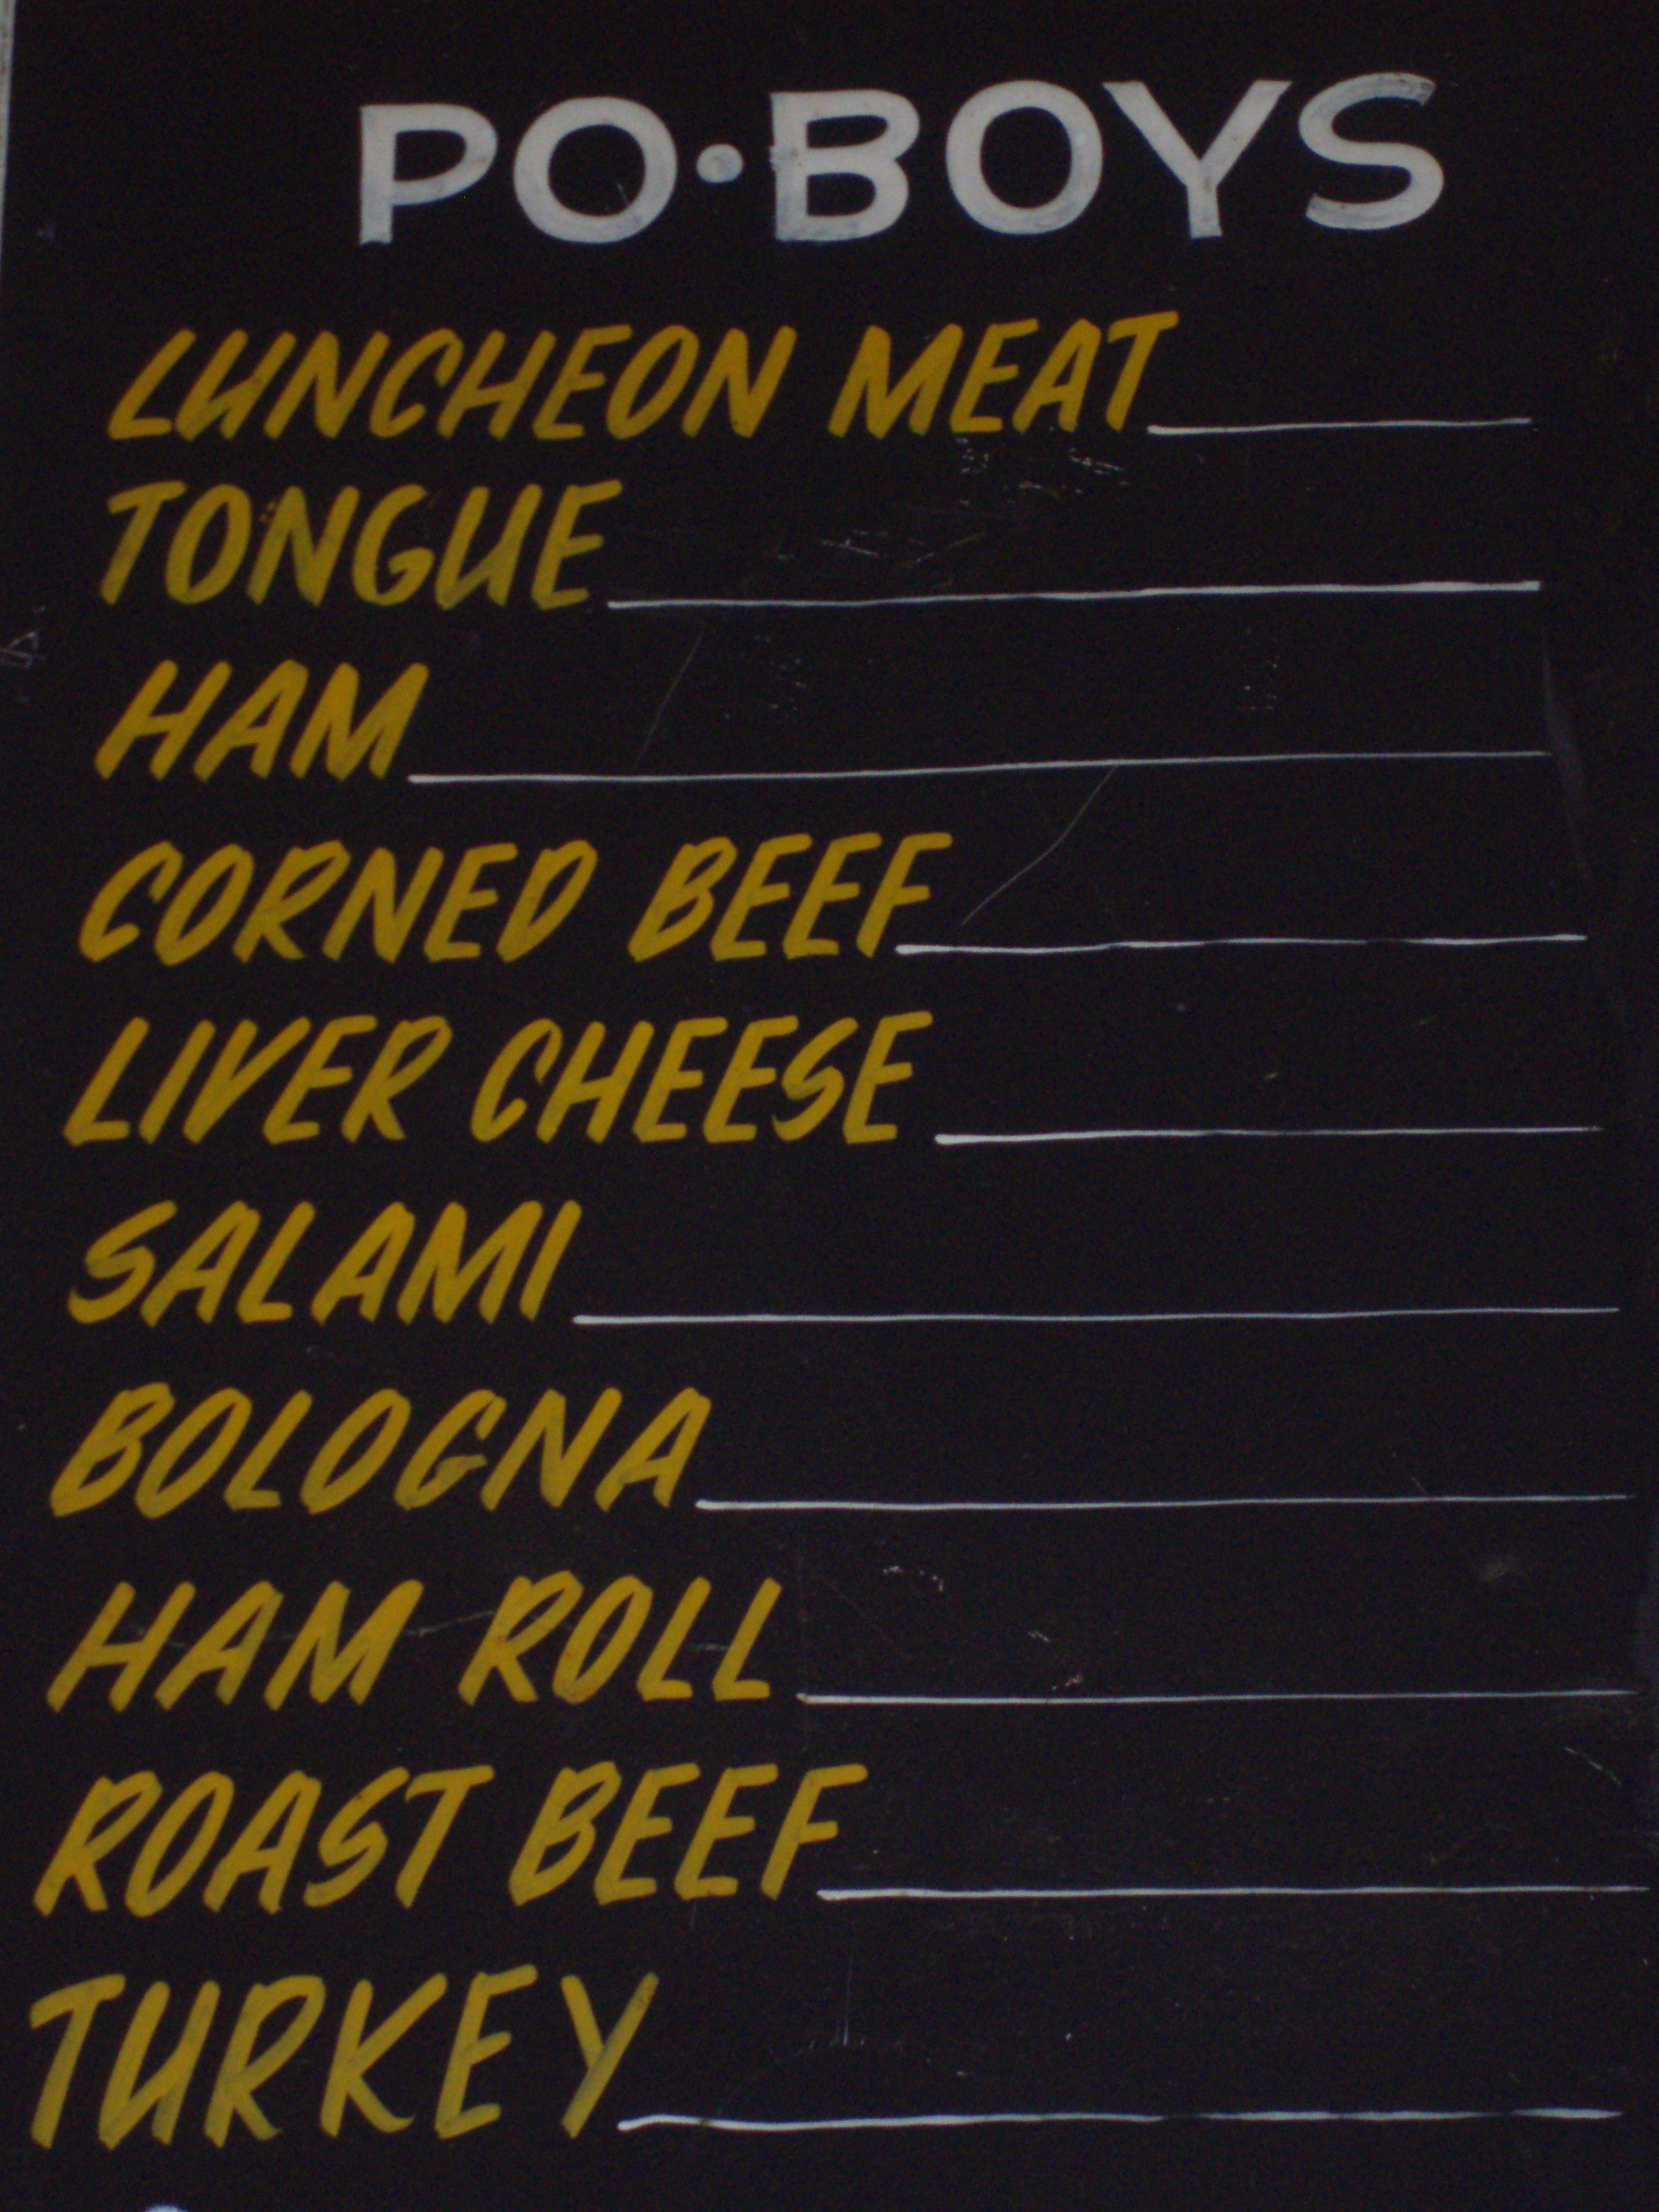 PO·BOYS
LUNCHEON MEAT
TONGUE
HAM
CORNED BEEF
LIVER CHEESE
SALAMI
BOLOGNA
HAM ROLL
ROAST BEEF
TURKEY